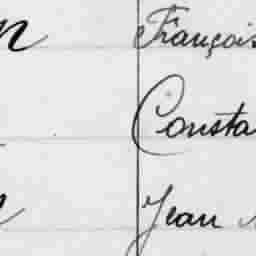 n François
Consta
Jean